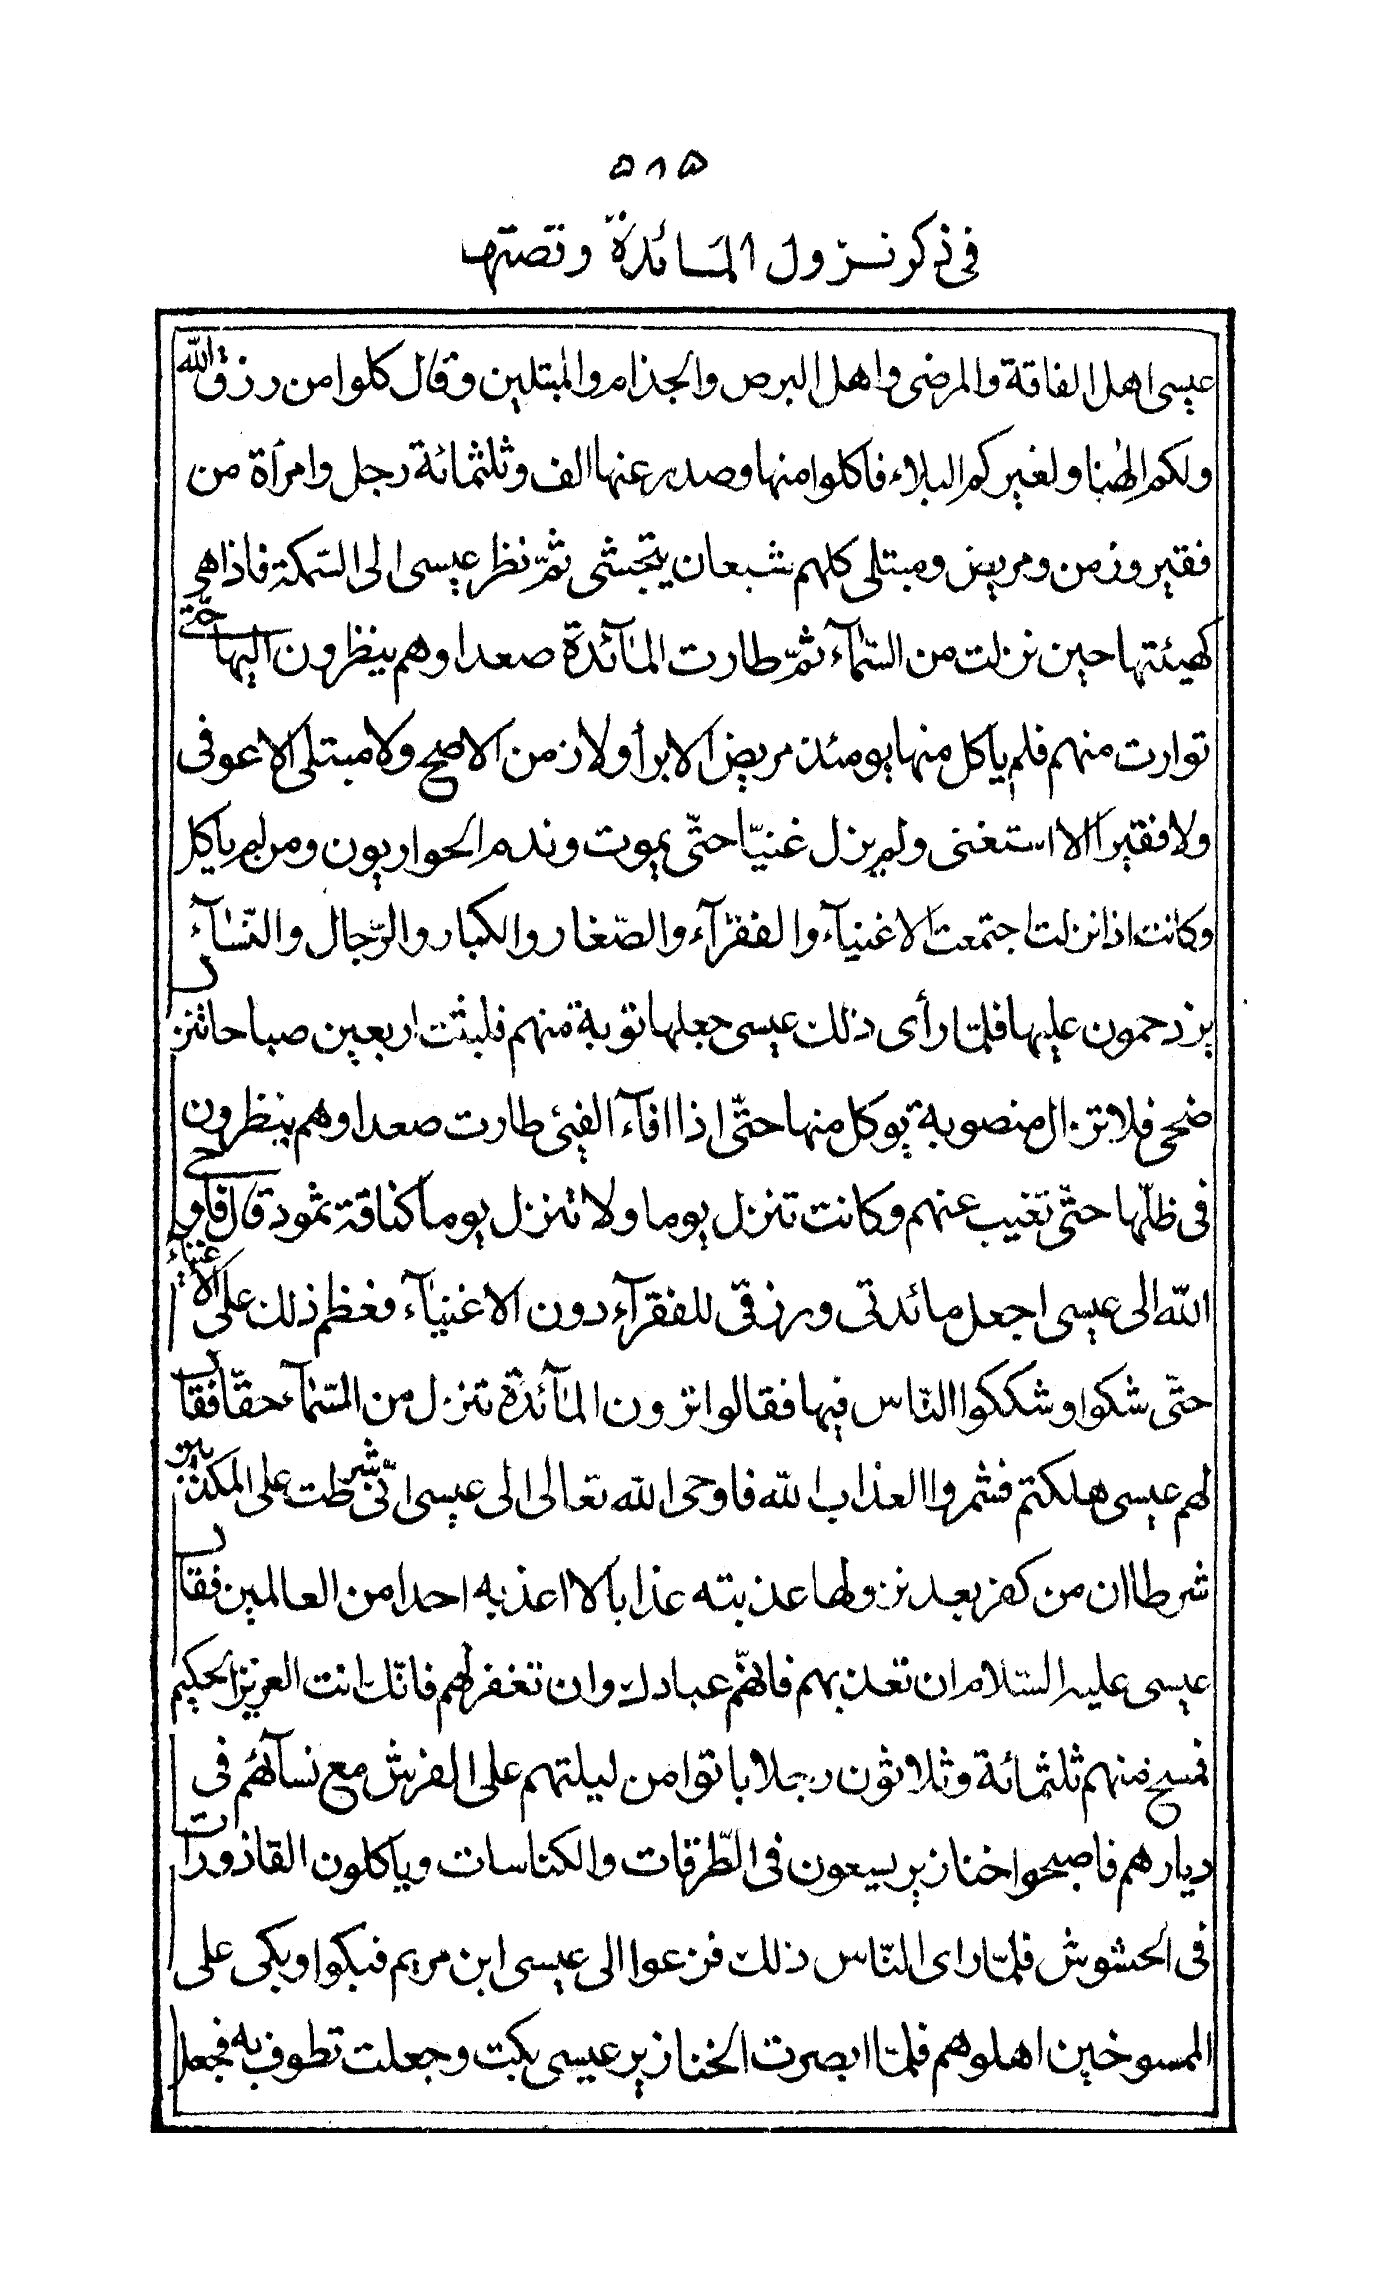 ٥٨٥
فی ذکر نزول المائدة وقصتها
عیسی اهل الفاقة والمرضی واهل البرص والجذام والمبتلین وقال کلوا من رزق الله
ولکم الهنا ولغیرکم البلاء فاکلوا منها وصدر عنها الف وثلثمائة رجل وامرأة من
فقیر وزمن ومریض ومبتلی کلهم شبعان یتجشی ثمّ نظر عیسی الی السّمکة فاذا هی
کهیئتها حین نزلت من السّمآء ثمّ طارت المآئدة صعدا وهم ینظرون الیها حتّی
توارت منهم فلم یاکل منها یومئذ مریض الا برأ ولا زمن الا صح ولا مبتلی الا عوفی
ولا فقیرا الا استغنی ولم یزل غنیّا حتّی یموت وندم الحواریون ومن لم یاکل
وکانت اذا نزلت اجتمعت الاغنیآء والفقرآء والصّغار والکبار والرّجال والنّسآء
یزدحمون علیها فلمّا رأی ذلک عیسی جعلها نوبة منهم فلبثت اربعین صباحا تنزل
ضحی فلا تزال منصوبة یوکل منها حتّی اذا افآء الفیئ طارت صعدا وهم ینظرون
فی ظلّها حتّی تغیب عنهم وکانت تنزل یوما ولا تنزل یوما کناقة ثمود قال فاوحی
الله الی عیسی اجعل مائدتی ورزقی للفقرآء دون الاغنیآء فعظم ذلک علی الاغنیآء
حتّی شکوا وشککوا النّاس فیها فقالوا اترون المآئدة تنزل من السّمآء حقّا فقال
لهم عیسی هلکتم فشمروا العذاب الله فاوحی الله تعالی الی عیسی انّی شرطت علی المکذبین
شرطا ان من کفر بعد نزولها عذبته عذابا لا اعذبه احدا من العالمین فقال
عیسی علیه السّلام ان تعذبهم فانهّم عبادک وان تغفر لهم فانّک انت العزیز الحکیم
فمسخ منهم ثلثمائة وثلاثون رجلا باتوا من لیلتهم علی الفرش مع نسآئهم فی
دیارهم فاصبحوا خنازیر یسعون فی الطّرقات والکناسات ویاکلون القاذورات
فی الحشوش فلمّا رای النّاس ذلک فزعوا الی عیسی ابن مریم فبکوا وبکی علی
الممسوخین اهلوهم فلمّا ابصرت الخنازیر عیسی بکت وجعلت تطوف به فجعل